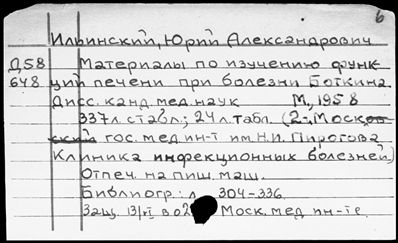 6
Ильинский, Юрий Александрович
Д58 Материалы по изучению функ-
648 ций печени при болезни Боткина
Дисс. канд. мед. наук М., 1958
337л. с табл.; 24 л. табл. (2-Москов
ский гос. мед. ин-т им. Н.И. Пирогова
Клиника инфекционных болезней)
Отпеч. на пиш. маш.
Библиогр.: л. 304-336.
Защ. 13/XI в 02 Моск. мед ин-те